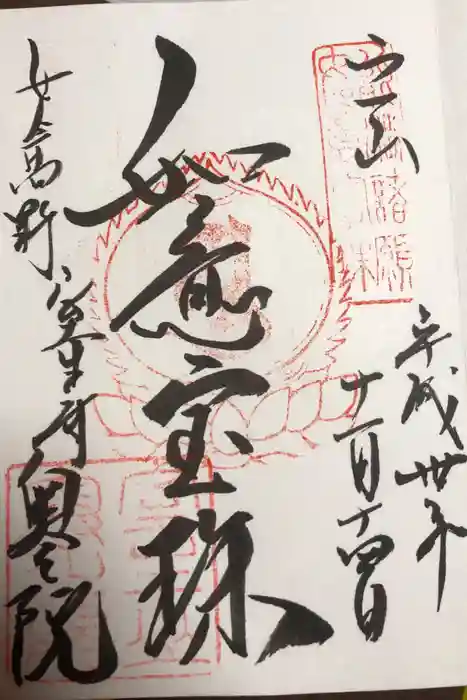 宀一山
平成卅年
十一月十四日
如意宝珠
女人高野室生寺奥之院